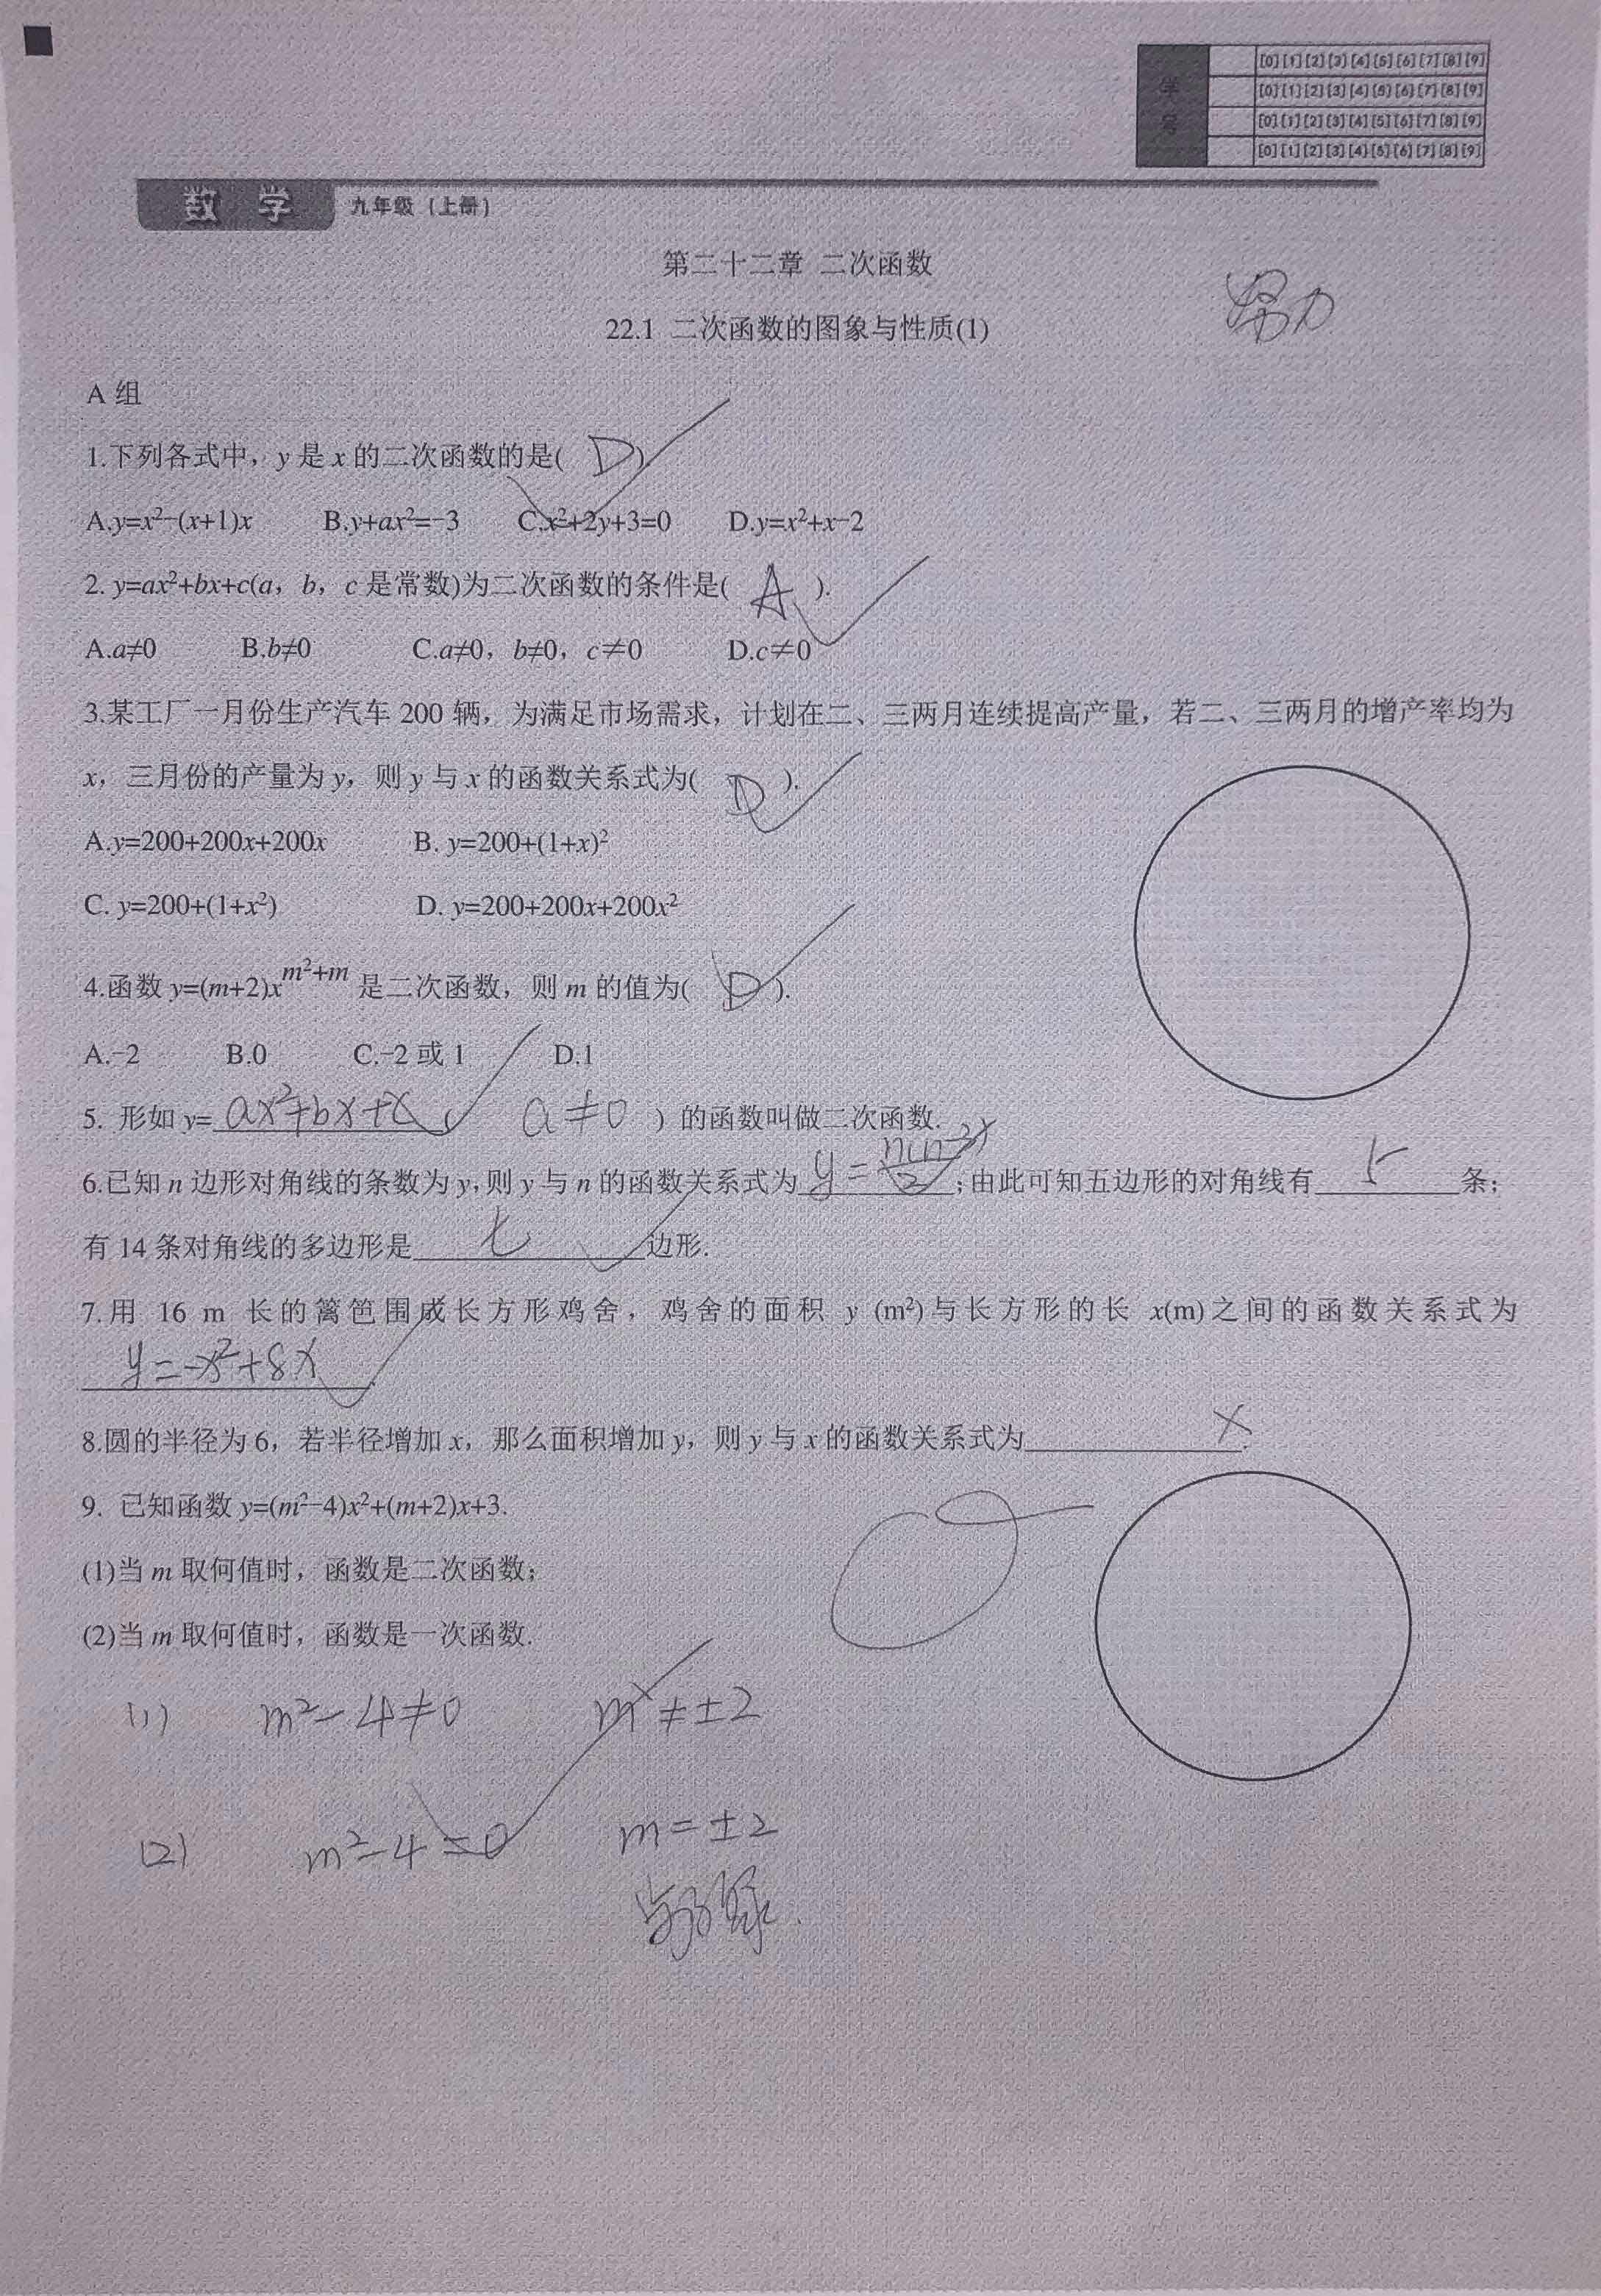 学号
[0][1][2][3][4][5][6][7][8][9]
[0][1][2][3][4][5][6][7][8][9]
[0][1][2][3][4][5][6][7][8][9]
[0][1][2][3][4][5][6][7][8][9]
数 学 九年级（上册）
第二十二章 二次函数
努力
22.1 二次函数的图象与性质(1)
A 组
1.下列各式中，y 是 x 的二次函数的是( D ).
A.y=x²-(x+1)x B.y+ax²=-3 C.x²+2y+3=0 D.y=x²+x-2
2. y=ax²+bx+c(a，b，c 是常数)为二次函数的条件是( A ).
A.a≠0 B.b≠0 C.a≠0，b≠0，c≠0 D.c≠0
3.某工厂一月份生产汽车 200 辆，为满足市场需求，计划在二、三两月连续提高产量，若二、三两月的增产率均为
x，三月份的产量为 y，则 y 与 x 的函数关系式为( D ).
A.y=200+200x+200x B. y=200+(1+x)²
C. y=200+(1+x²) D. y=200+200x+200x²
4.函数 y=(m+2)x^{m²+m} 是二次函数，则 m 的值为( D ).
A.-2 B.0 C.-2 或 1 D.1
5. 形如 y= ax²+bx+c ( a≠0 ）的函数叫做二次函数.
6.已知 n 边形对角线的条数为 y,则 y 与 n 的函数关系式为 y=n(n-3)/2 ;由此可知五边形的对角线有 5 条；
有 14 条对角线的多边形是 七 边形.
7.用 16 m 长的篱笆围成长方形鸡舍，鸡舍的面积 y (m²)与长方形的长 x(m)之间的函数关系式为
y=-x²+8x .
8.圆的半径为 6，若半径增加 x，那么面积增加 y，则 y 与 x 的函数关系式为 .
9. 已知函数 y=(m²-4)x²+(m+2)x+3.
(1)当 m 取何值时，函数是二次函数；
(2)当 m 取何值时，函数是一次函数.
(1) m²-4≠0 m≠±2
(2) m²-4=0 m=±2